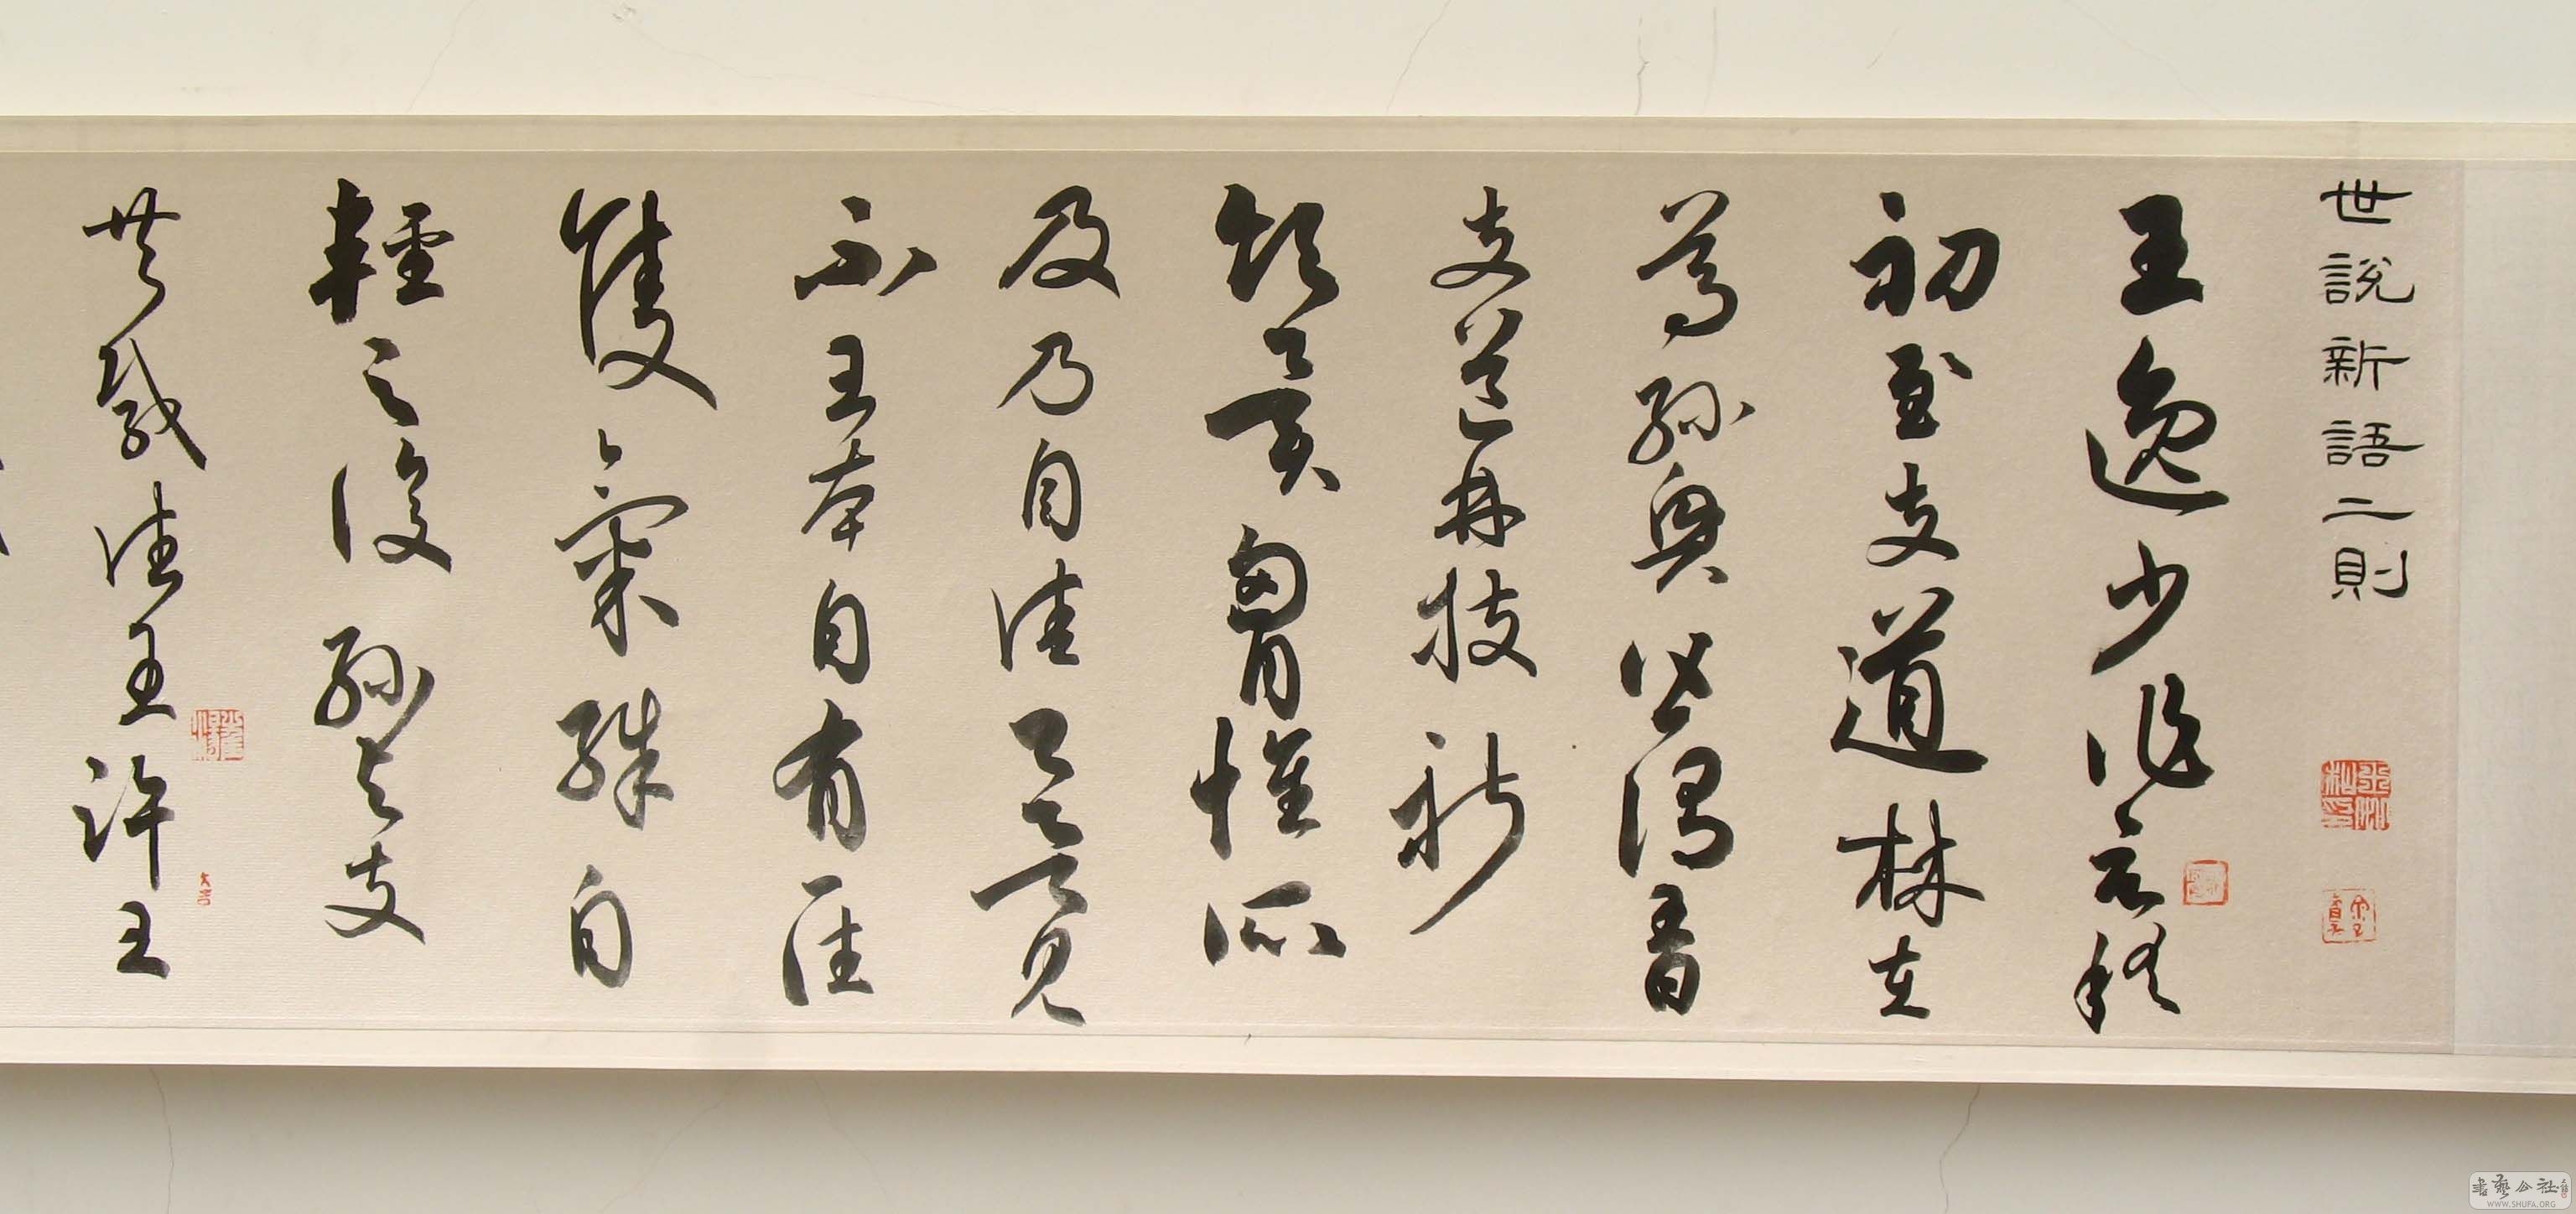 世說新語二則
王逸少作會稽
初至支道林在
焉孫興公謂王曰
支道林拔新
領異胸懷所
及乃自佳卿欲見
不王本自有一往
雋氣殊自
輕之後孫與支
共載往王許王
大吉
書藝公社
WWW.SHUFA.ORG